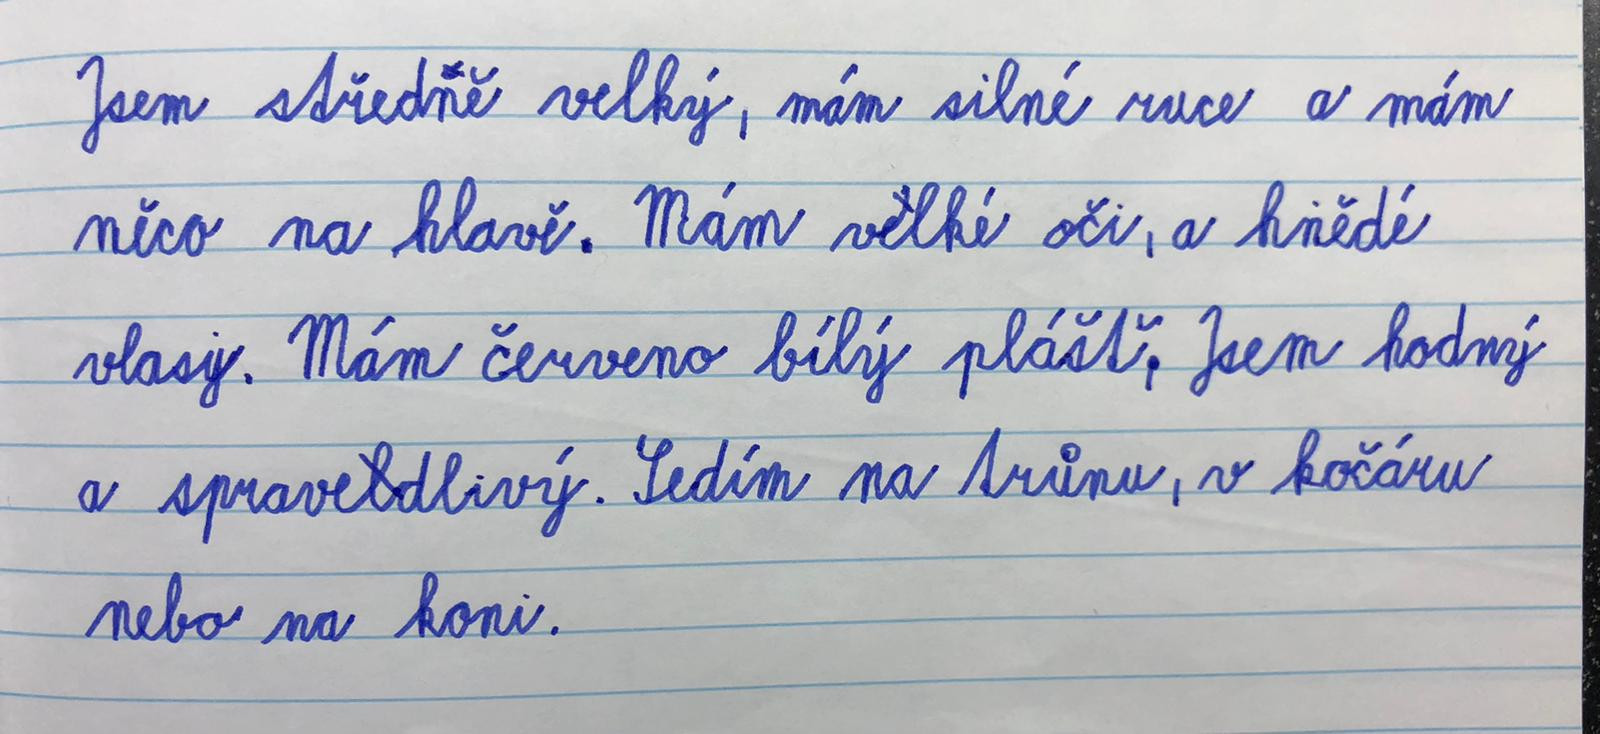 Jsem středně velký, mám silné ruce a mám
něco na hlavě. Mám velké oči, a hnědé
vlasy. Mám červeno bílý plášť. Jsem hodný
a spravedlivý. Sedím na trůnu, v kočáru
nebo na koni.